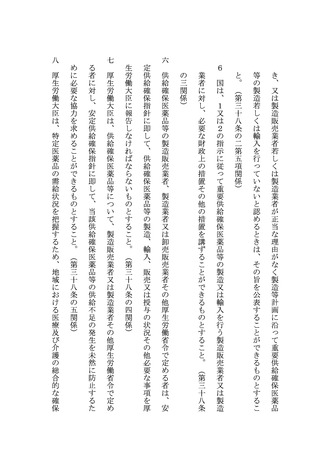 き、又は製造販売業者若しくは製造業者が正当な理由がなく製造等計画に沿って重要供給確保医薬品
等の製造若しくは輸入を行っていないと認めるときは、その旨を公表することができるものとするこ
と。（第三十八条の二第五項関係）
６　国は、１又は２の指示に従って重要供給確保医薬品等の製造又は輸入を行う製造販売業者又は製造
業者に対し、必要な財政上の措置その他の措置を講ずることができるものとすること。（第三十八条
の三関係）
六　供給確保医薬品等の製造販売業者、製造業者又は卸売販売業者その他厚生労働省令で定める者は、安
定供給確保指針に即して、供給確保医薬品等の製造、輸入、販売又は授与の状況その他必要な事項を厚
生労働大臣に報告しなければならないものとすること。（第三十八条の四関係）
七　厚生労働大臣は、供給確保医薬品等について、製造販売業者又は製造業者その他厚生労働省令で定め
る者に対し、安定供給確保指針に即して、当該供給確保医薬品等の供給不足の発生を未然に防止するた
めに必要な協力を求めることができるものとすること。（第三十八条の五関係）
八　厚生労働大臣は、特定医薬品の需給状況を把握するため、地域における医療及び介護の総合的な確保